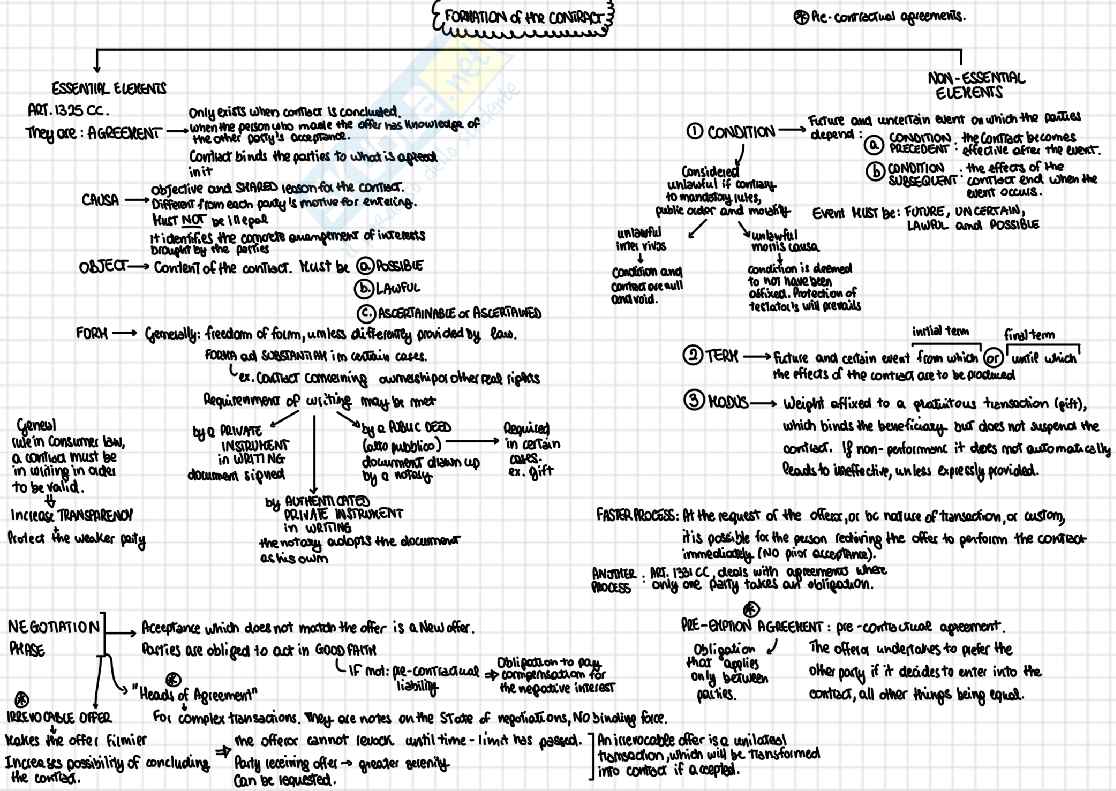 FORMATION of the CONTRACT
* Pre-contractual agreements.
ESSENTIAL ELEMENTS
ART. 1325 CC.
They are: AGREEMENT → Only exists when contract is concluded.
when the person who made the offer has knowledge of
the other party's acceptance.
Contract binds the parties to what is agreed
in it
CAUSA → Objective and SHARED reason for the contract.
Different from each party's motive for entering.
Must NOT be illegal
It identifies the concrete arrangement of interests
brought by the parties
OBJECT → Content of the contract. Must be a. POSSIBLE
b. LAWFUL
c. ASCERTAINABLE or ASCERTAINED
FORM → Generally: freedom of form, unless differently provided by law.
FORMA ad SUBSTANTIAM in certain cases.
ex. Contract concerning ownership or other real rights
Requirement of writing may be met
by a PRIVATE
INSTRUMENT
in WRITING
document signed
by AUTHENTICATED
PRIVATE INSTRUMENT
in WRITING
the notary adopts the document
as his own
by a PUBLIC DEED
(atto pubblico)
document drawn up
by a notary
→ Required
in certain
cases.
ex. gift
General
rule in Consumer law,
a contract must be
in writing in order
to be valid.
Increase TRANSPARENCY
Protect the weaker party
NON-ESSENTIAL
ELEMENTS
1 CONDITION → Future and uncertain event on which the parties
depend: a CONDITION PRECEDENT: the contract becomes
effective after the event.
b CONDITION SUBSEQUENT: the effects of the
contract end when the
event occurs.
Event MUST be: FUTURE, UNCERTAIN,
LAWFUL and POSSIBLE
Considered
unlawful if contrary
to mandatory rules,
public order and morality
unlawful
inter vivos
Condition and
contract are null
and void.
unlawful
mortis causa
condition is deemed
to not have been
affixed. Protection of
testator's will prevails
initial term
final term
2 TERM → Future and certain event from which or until which
the effects of the contract are to be produced
3 MODUS → Weight affixed to a gratuitous transaction (gift),
which binds the beneficiary but does not suspend the
contract. If non-performent it does not automatically
leads to ineffective, unless expressly provided.
FASTER PROCESS: At the request of the offeror, or bc nature of transaction, or custom,
it is possible for the person receiving the offer to perform the contract
immediately (NO prior acceptance).
ANOTHER PROCESS: ART. 1331 CC, deals with agreements where
only one party takes an obligation.
NEGOTIATION
PHASE
→ Acceptance which does not match the offer is a New offer.
Parties are obliged to act in GOOD FAITH
IF not: pre-contractual
liability
⇒ Obligation to pay
compensation for
the negative interest
* "Heads of Agreement"
For complex transactions. They are notes on the State of negotiations, NO binding force.
*
IRREVOCABLE OFFER
Makes the offer firmier
Increases possibility of concluding
the contract.
⇒ The offeror cannot revock until time-limit has passed.
Party receiving offer → greater serenity
Can be requested.
An irrevocable offer is a unilateral
transaction, which will be transformed
into contract if accepted.
*
PRE-EMPTION AGREEMENT: pre-contractual agreement.
Obligation
that applies
only between
parties.
The offeror undertakes to prefer the
other party if it decides to enter into the
contract, all other things being equal.